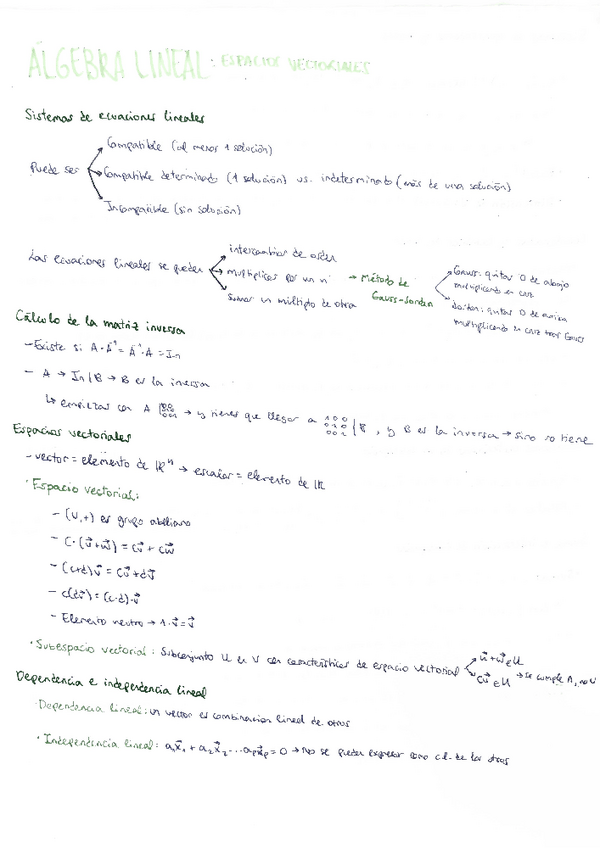 ÁLGEBRA LINEAL: ESPACIOS VECTORIALES
Sistemas de ecuaciones lineales
Puede ser
Compatible (al menos 1 solución)
Compatible determinado (1 solución) vs. indeterminado (más de una solución)
Incompatible (sin solución)
Las ecuaciones lineales se pueden
intercambiar de orden
multiplicar por un nº
Sumar un múltiplo de otra
→ Método de Gauss-Jordan
Gauss: quitar 0 de abajo
multiplicando en cruz
Jordan: quitar 0 de arriba
multiplicando en cruz tras Gauss
Cálculo de la matriz inversa
- Existe si A·A⁻¹ = A⁻¹·A = In
- A → In | B → B es la inversa
↳ empiezas con A | 100 010 001 → y tienes que llegar a 100 010 001 | B, y B es la inversa → sino no tiene
Espacios vectoriales
- vector = elemento de ℝⁿ → escalar = elemento de ℝ
· Espacio vectorial:
- (V,+) es grupo abeliano
- C·(u⃗+w⃗) = cu⃗ + cw⃗
- (c+d)v⃗ = cv⃗ + dv⃗
- c(dv⃗) = (c·d)·v⃗
- Elemento neutro → 1·v⃗ = v⃗
· Subespacio vectorial: Subconjunto U en V con características de espacio vectorial
u⃗+w⃗ ∈ U
cu⃗ ∈ U
→ se cumple
Dependencia e independencia lineal
· Dependencia lineal: un vector es combinación lineal de otros
· Independencia lineal: a₁x⃗₁ + a₂x⃗₂ ... aₚx⃗ₚ = 0 → No se pueden expresar como c.l. de los otros